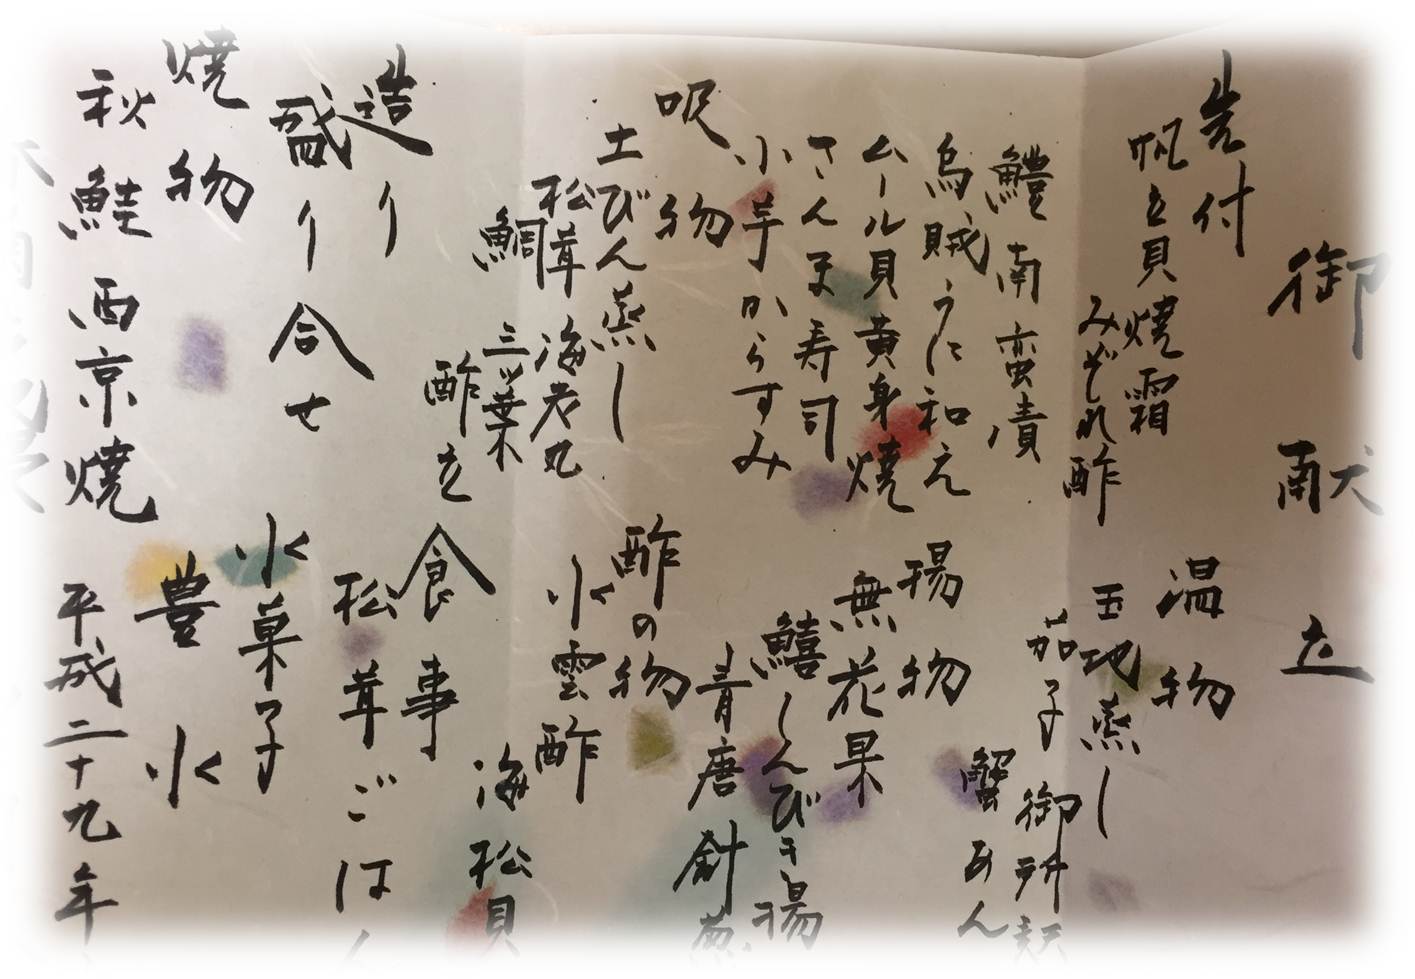 御献立
先付
帆立貝焼霜
みぞれ酢
鱧南蛮漬
烏賊うに和え
ムール貝黄身焼
さんま寿司
小芋からすみ
吸物
土びん蒸し
松茸 海老丸
鯛 三ッ葉
酢立
造り
盛り合せ
焼物
秋鮭西京焼
温物
玉地蒸し
茄子 御所
蟹あん
揚物
無花果
鱚しんびき揚
青唐 針
酢の物
水雲酢
海松貝
食事
松茸ごはん
水菓子
豊水
平成二十九年